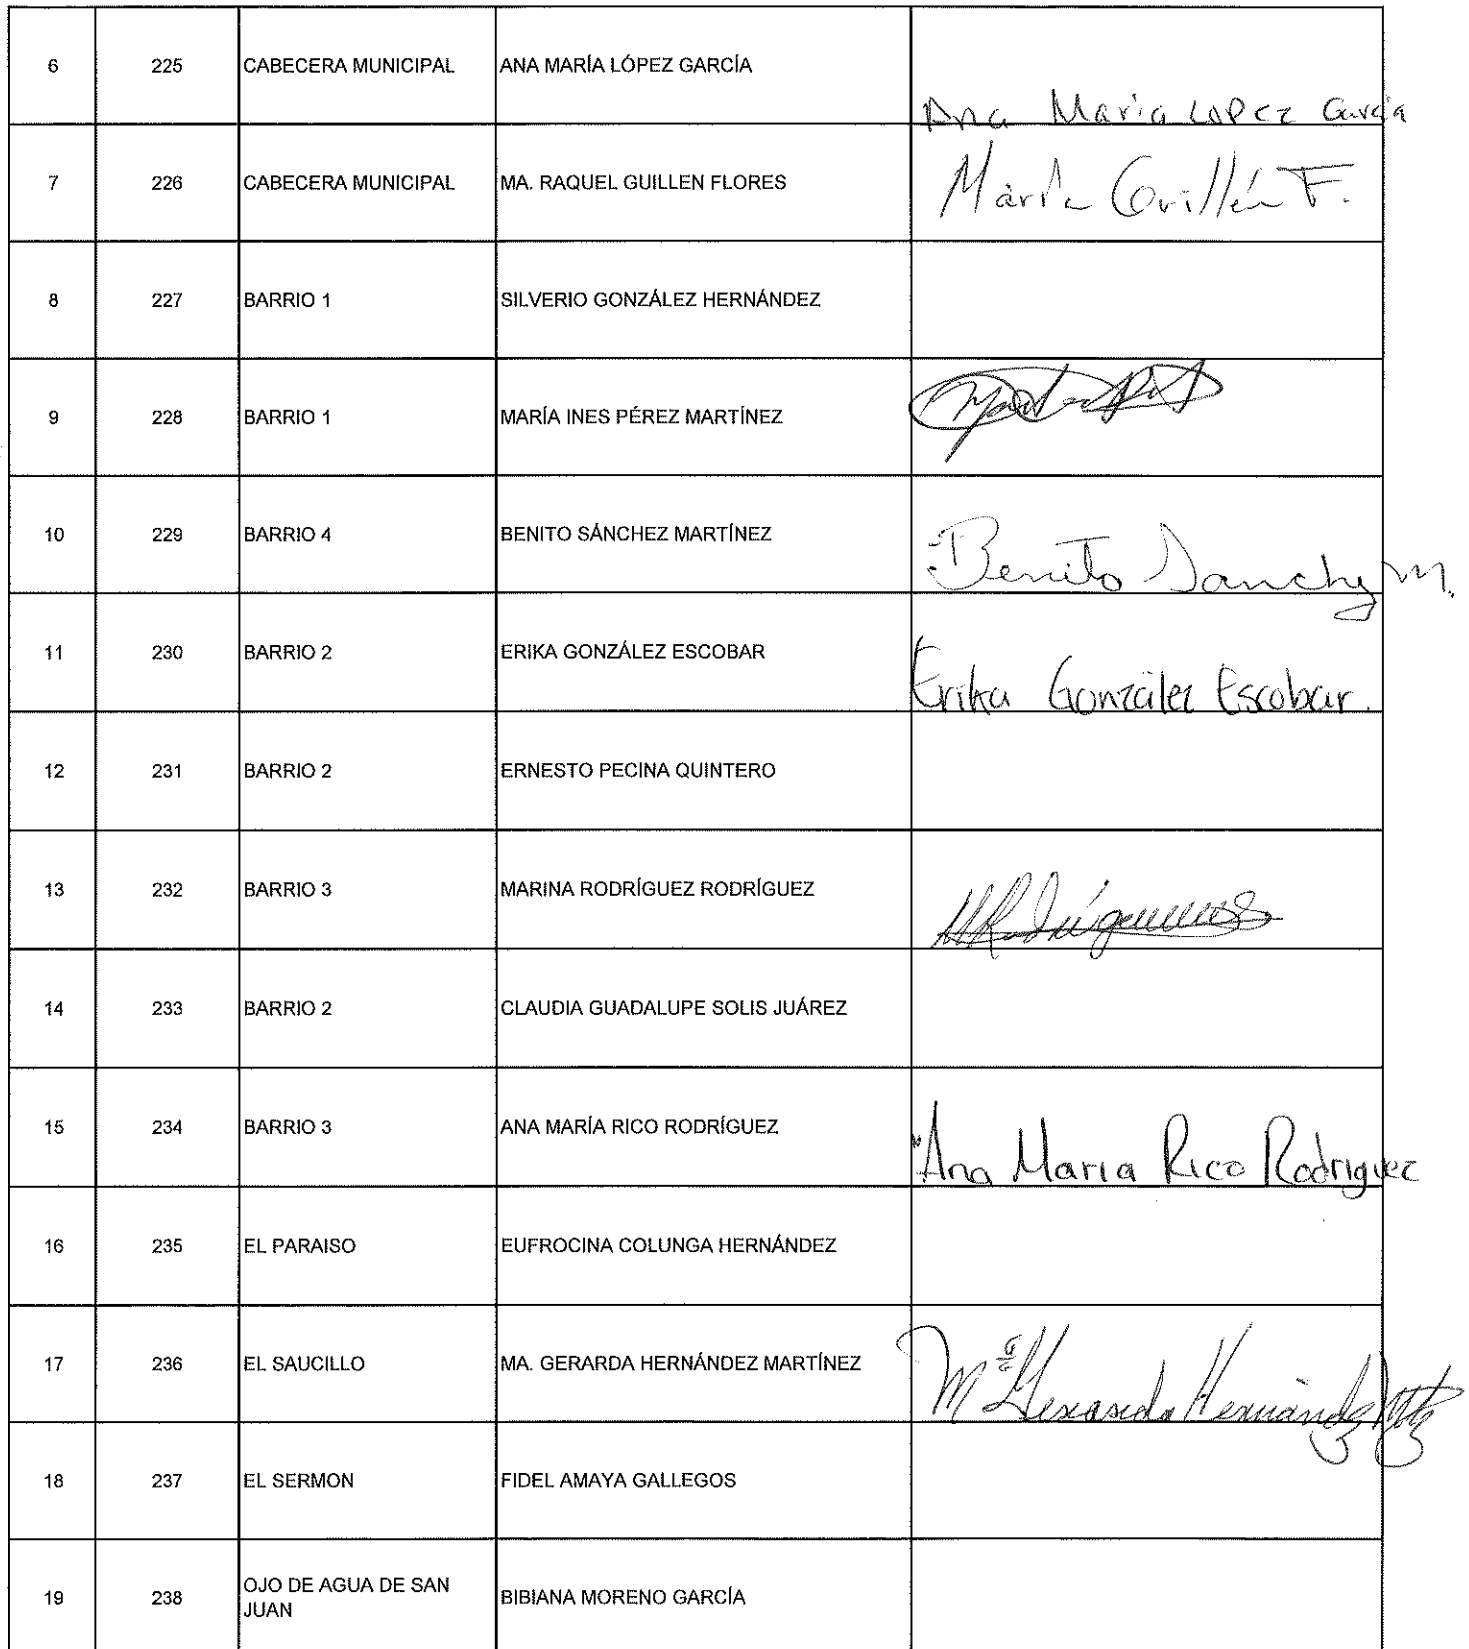 6 225 CABECERA MUNICIPAL ANA MARÍA LÓPEZ GARCÍA Ana Maria LOPEZ García
7 226 CABECERA MUNICIPAL MA. RAQUEL GUILLEN FLORES María Guillén F.
8 227 BARRIO 1 SILVERIO GONZÁLEZ HERNÁNDEZ
9 228 BARRIO 1 MARÍA INES PÉREZ MARTÍNEZ
10 229 BARRIO 4 BENITO SÁNCHEZ MARTÍNEZ Benito Sanchez M.
11 230 BARRIO 2 ERIKA GONZÁLEZ ESCOBAR Erika González Escobar.
12 231 BARRIO 2 ERNESTO PECINA QUINTERO
13 232 BARRIO 3 MARINA RODRÍGUEZ RODRÍGUEZ
14 233 BARRIO 2 CLAUDIA GUADALUPE SOLIS JUÁREZ
15 234 BARRIO 3 ANA MARÍA RICO RODRÍGUEZ Ana Maria Rico Rodriguez
16 235 EL PARAISO EUFROCINA COLUNGA HERNÁNDEZ
17 236 EL SAUCILLO MA. GERARDA HERNÁNDEZ MARTÍNEZ Mª Gerarda Hernández Mtz
18 237 EL SERMON FIDEL AMAYA GALLEGOS
19 238 OJO DE AGUA DE SAN
JUAN BIBIANA MORENO GARCÍA